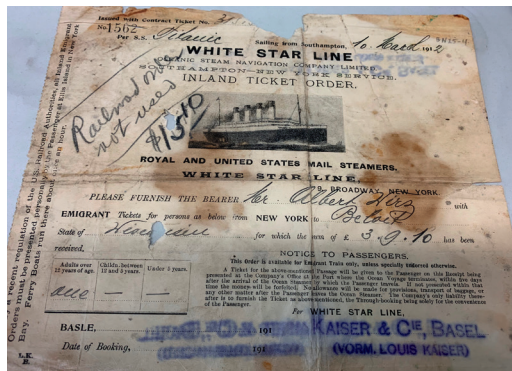 Issued with Contract Ticket No. 31
No 1562
Per S.S. Titanic Sailing from Southampton, 10. March 1912
WHITE STAR LINE
OCEANIC STEAM NAVIGATION COMPANY LIMITED
SOUTHAMPTON—NEW YORK SERVICE.
INLAND TICKET ORDER.
Railroad order
not used
$15.40
ROYAL AND UNITED STATES MAIL STEAMERS.
WHITE STAR LINE,
9, BROADWAY, NEW YORK.
PLEASE FURNISH THE BEARER Mr. Albert Wirz with
EMIGRANT Tickets for persons as below from NEW YORK to Beloit
State of Wisconsin for which the sum of £ 3.9.10 has been
received.
Adults over 12 years of age. Childn. between 12 and 5 years. Under 5 years.
one
NOTICE TO PASSENGERS.
This Order is available for Emigrant Train only, unless specially endorsed otherwise.
A Ticket for the above-mentioned Passage will be given to the Passenger on this Receipt being
presented at the Company's Office at the Port where the Ocean Voyage terminates, within five days
after the arrival of the Ocean Steamer by which the Passenger leaves. If not presented within that
time the money will be forfeited. No allowance will be made for provisions, transport of luggage, or
any other matter after the Passenger leaves the Ocean Steamer. The Company's only liability there-
after is to furnish the Ticket as above mentioned, the Through-booking being solely for the convenience
of the Passenger.
Per WHITE STAR LINE,
BASLE, 191 KAISER & CIE, BASEL
Date of Booking, 191 (VORM. LOUIS KAISER)
L.K.
B.
recent regulation of the U.S. Railroad Authorities, all Inland Emigrant
Orders must be presented personally by the Passenger at Ellis Island in New York
Bay. Ferry Boats run there about once an hour.